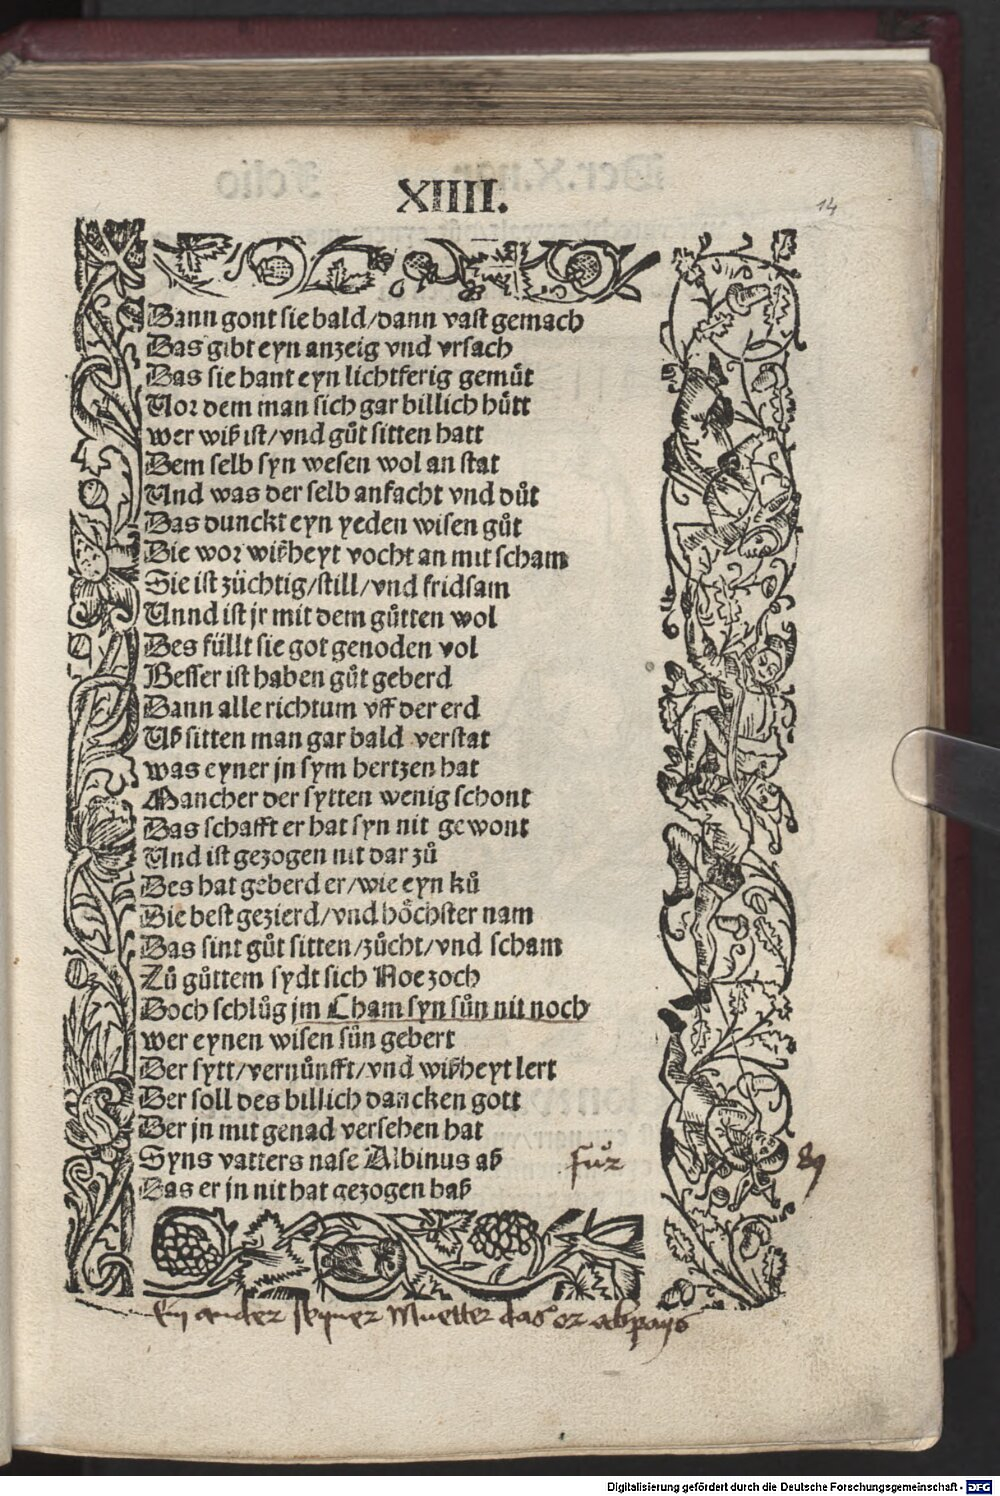 XIIII.
14
Dann gont sie bald/dann vast gemach
Das gibt eyn anzeig vnd vrsach
Das sie hant eyn lichtferig gemuͤt
Vor dem man sich gar billich huͤtt
wer wiß ist/vnd guͦt sitten hatt
Dem selb syn wesen wol an stat
Vnd was der selb anfacht vnd duͦt
Das dunckt eyn yeden wisen guͦt
Die wor wißheyt vocht an mit scham
Sie ist züchtig/still/vnd fridsam
Vnnd ist jr mit dem guͦtten wol
Des füllt sie got genoden vol
Besser ist haben guͦt geberd
Dann alle richtum vff der erd
Vß sitten man gar bald verstat
was eyner jn sym hertzen hat
Mancher der sytten wenig schont
Das schafft er hat syn nit gewont
Vnd ist gezogen nit dar zuͦ
Des hat geberd er/wie eyn kuͦ
Die best gezierd/vnd hoͤchster nam
Das sint guͦt sitten/zuͤcht/vnd scham
Zuͦ guͦttem sydt sich Noe zoch
Doch schluͦg jm Cham syn suͦn nit noch
wer eynen wisen suͦn gebert
Der sytt/vernuͦnfft/vnd wißheyt lert
Der soll des billich dancken gott
Der jn mit genad versehen hat
Syns vatters nase Albinus aß
fuͦr
Das er jn nit hat gezogen baß
Ein ander seyner Muetter das or abpayß
Digitalisierung gefördert durch die Deutsche Forschungsgemeinschaft - DFG